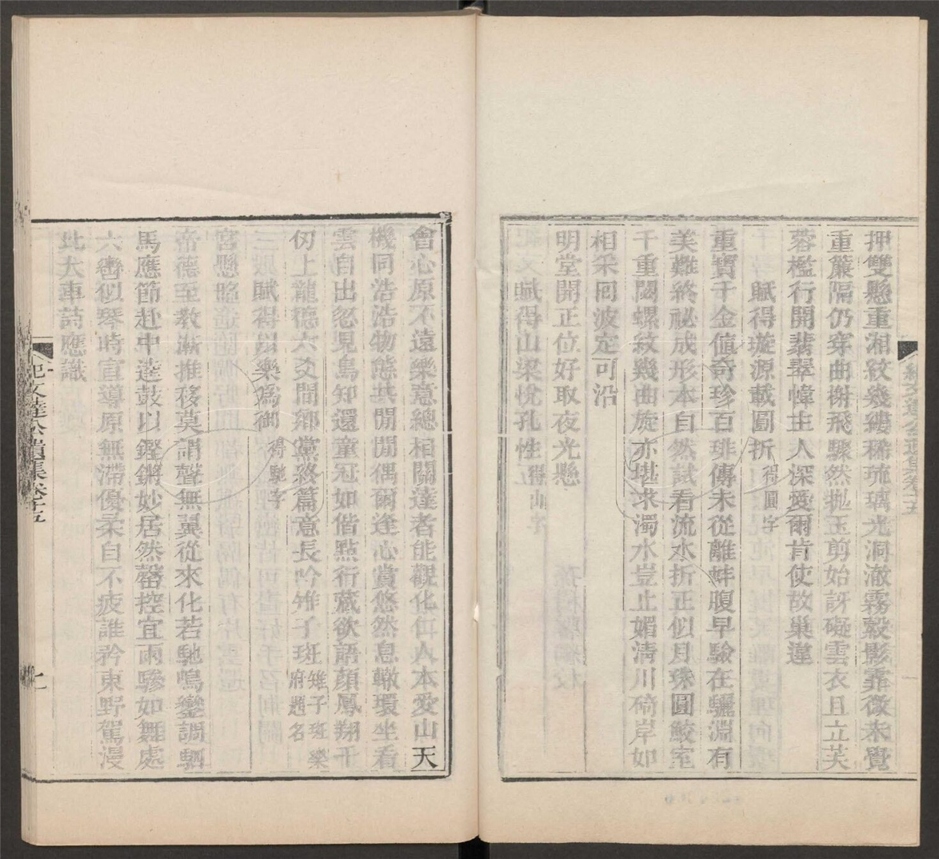 押雙懸重湘紋幾縷稀琉璃光洞澈霧縠影霏微未覺
重簾隔仍穿曲榭飛驟然拋玉剪始訝礙雲衣且立芙
蓉檻行開翡翠幃主人深愛爾肯使故巢違
賦得璇源載圓折得圓字
重寶千金值奇珍百琲傳未從離蚌腹早驗在驪淵有
美難終祕成形本自然試看流水折正似月珠圓鮫室
千重閟螺紋幾曲旋亦堪求濁水豈止媚清川倚岸如
相采回波定可沿
明堂開正位好取夜光懸
賦得山梁悅孔性得山字
會心原不遠樂意總相關達者能觀化仁人本愛山天
機同浩浩物態共閒閒偶爾逢心賞悠然息轍環坐看
雲自出忽見鳥知還童冠如偕點行藏欲語顏鳳翔千
仞上龍德六爻間鄉黨終篇意長吟雉子班雉子班樂府題名
三賦得以樂為御得馳字
帝德至教漸推移莫謂聲無翼從來化若馳鳴鑾調駟
馬應節赴中逵鼓以鏗鏘妙居然罄控宜兩驂如舞處
六轡似琴時直導原無滯優柔自不疲誰矜東野駕漫
此大車詩應識
紀文達公遺集卷十五
七